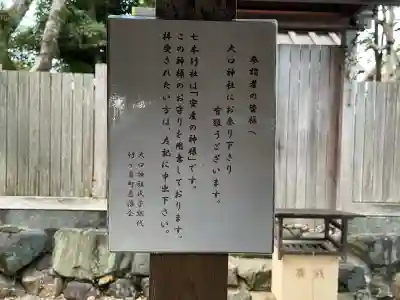 参詣者の皆様へ
大口神社にお参り下さり
有難うございます。
七本杉社は「安産の神様」です。
この神様のお守りを用意しております。
拝受されたい方は、左記に申出下さい。
大口神社氏子総代